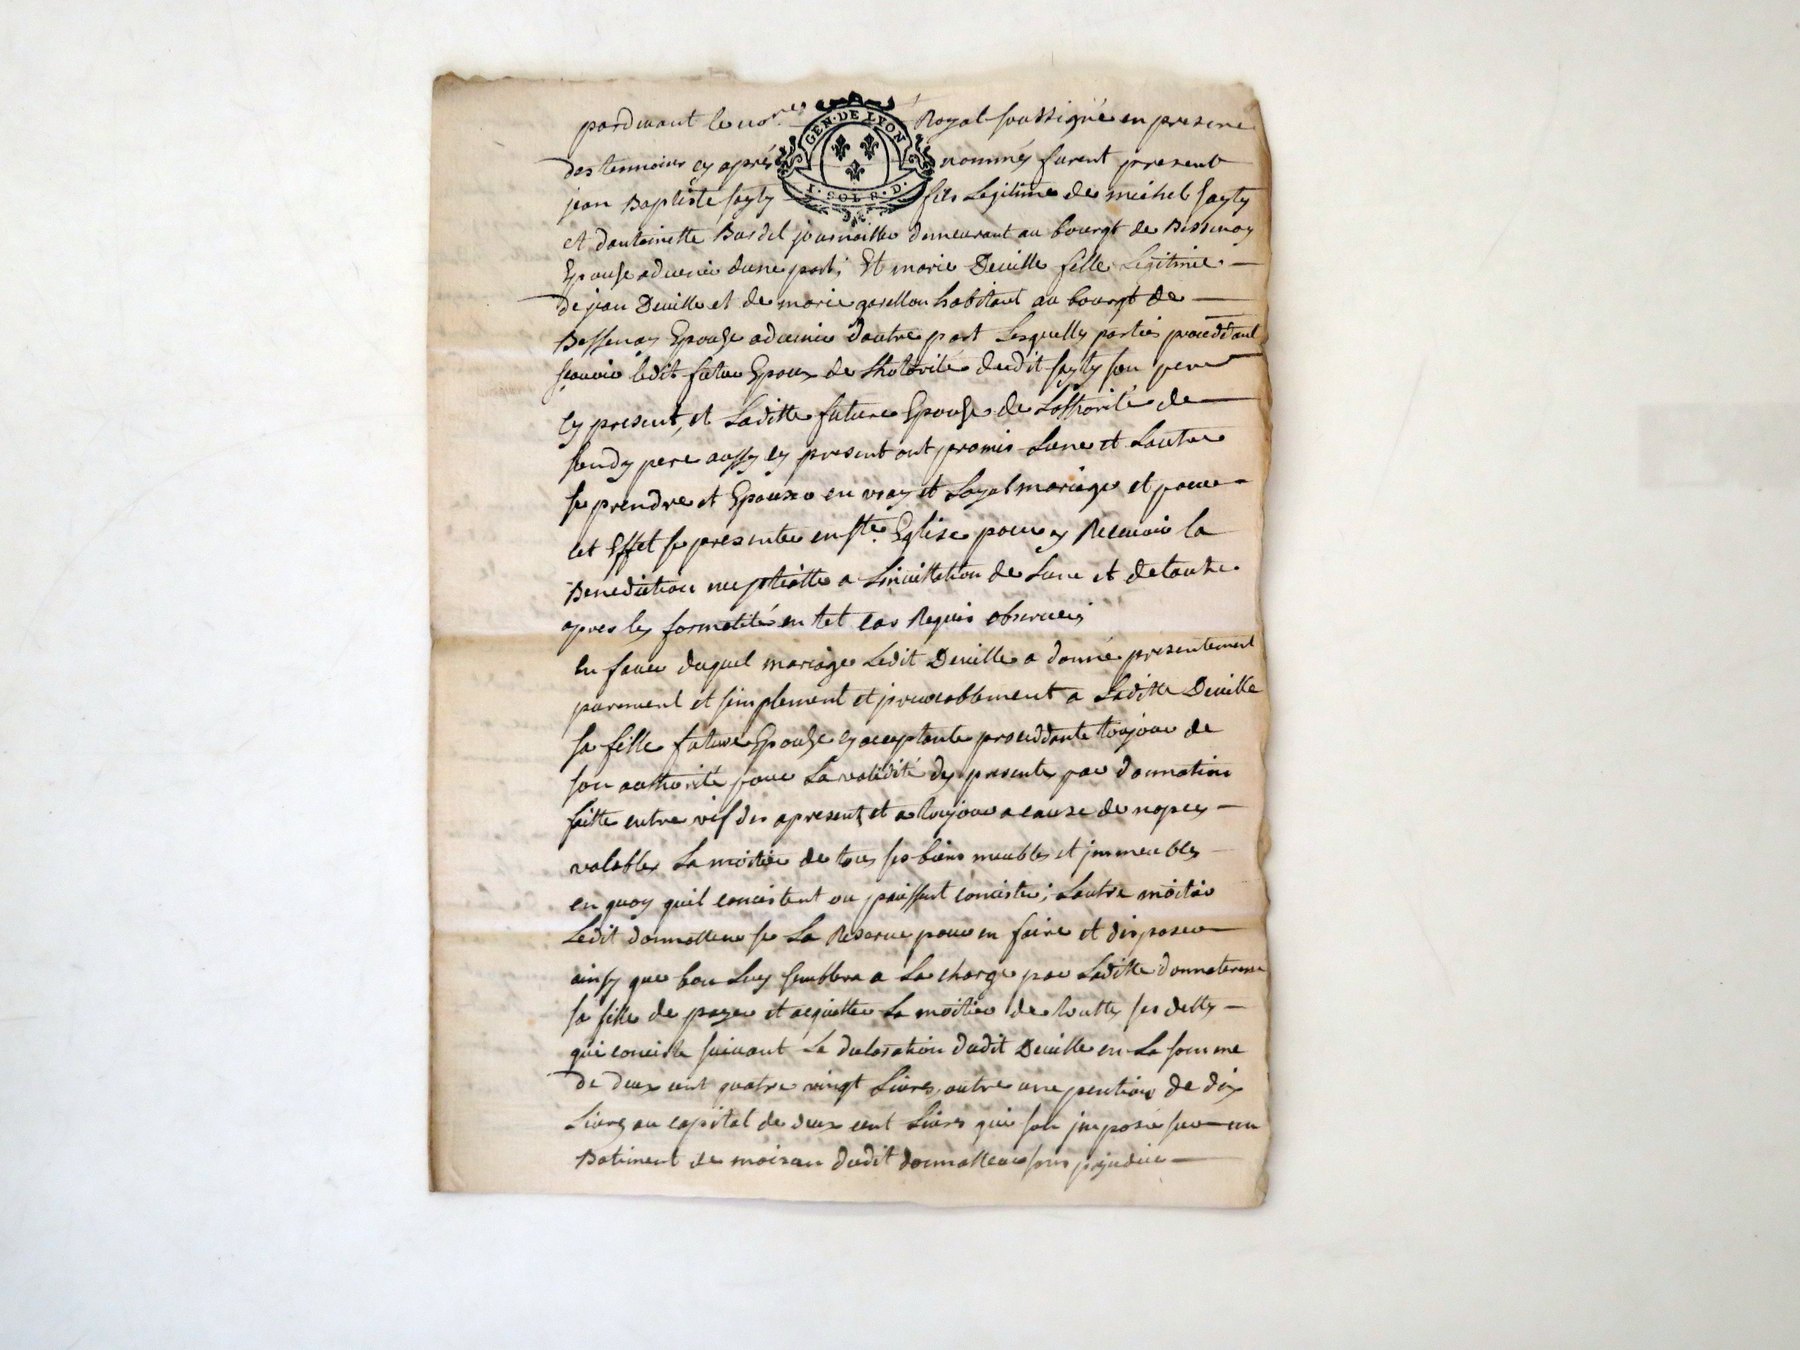 pardevant le no.re Royal soussigné en presence
GEN·DE LYON
I·SOL·6·D·
des temoins cy aprés nommés furent present
jean Baptiste fayty fils Legitime de michel fayty
et dantoinette Bardel journaillie demeurant au bourgt de Bessenay
Epouse advenir dune part; Et marie Deville fille Legitime
de jean Deville et de marie garellon habitant au bourgt de
Bessenay Epouse advenir dautre part Lesquelles parties procedtant
scavoir ledit futur Epoux de Lhotorité dudit fayty son pere
cy present, et Laditte future Epouse de Lotthorité de
sondy pere aussy cy present ont promis Lune et Lautre
se prendre et Epouser en vray et Loyal mariage et pour
cet Effet se presenter en Ste. Eglise pour y Recevoir la
Benediction nuptialle a Linvittation de Lune et de lautre
apres les formalité en tel cas Requis observeés
en faveur duquel mariage Ledit Deville a donné presentement
purement et simplement et jrrevocablement a Laditte Deville
sa fille future Epouse cy acceptante proceddante toujour de
son authorité pour La validité des presentes par donnation
faitte entre vif des apresent et a toujour a cause de nopces
valables La moitié de tous ses biens meubles et jmmeubles
en quoy quil consistent ou puissent consister; Lautre moitié
Ledit donnatteur se La Reserve pour en faire et disposer
ainsy que bon Luy semblera a La charge par Laditte donnateresse
sa fille de payer et acquitter La moitié de toutte ses dettes
qui consiste suivant La declaration dudit Deville en La somme
de deux cent quatre vingt Livres, outre une pention de dix
Livres au capital de deux cent Livres qui son jmposé sur un
Batiment de maison dudit donnatteur sans prejudice